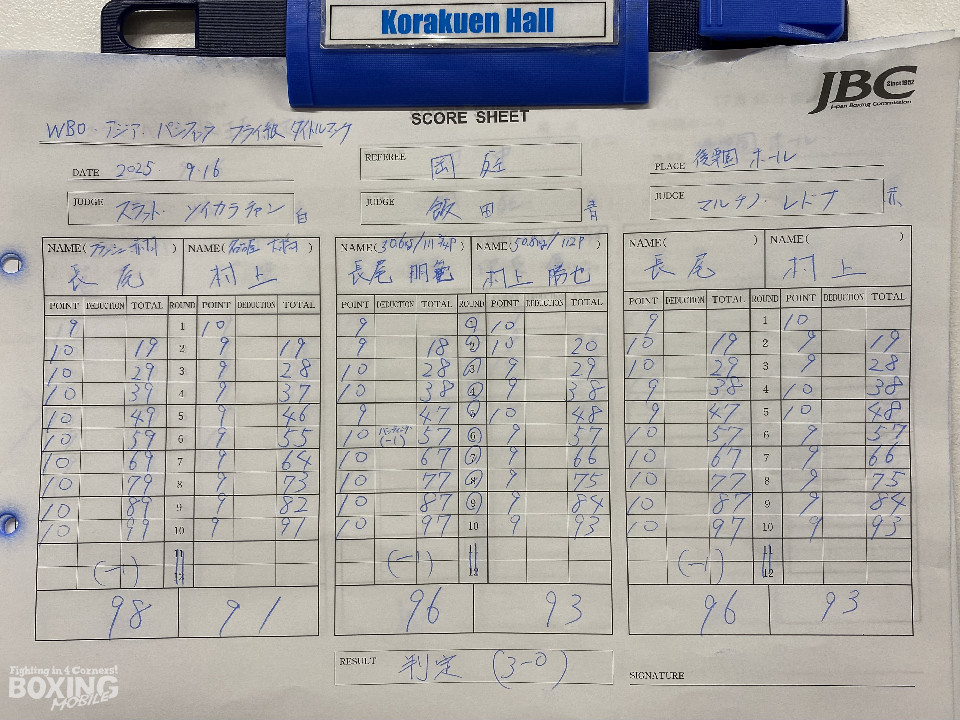 Korakuen Hall
JBC Since 1952
Japan Boxing Commission
SCORE SHEET
WBO・アジア・パシフィック フライ級 タイトルマッチ
DATE 2025. 9.16
REFEREE
PLACE 後楽園 ホール
JUDGE スラット・ソイカラチャン 白
JUDGE 飯田 青
JUDGE マルチノ・レドーナ 赤
NAME( ) NAME( ) NAME( ) NAME( ) NAME( ) NAME( )
長尾 村上 長尾 朋範 村上 勝也 長尾 村上
POINT DEDUCTION TOTAL ROUND POINT DEDUCTION TOTAL POINT DEDUCTION TOTAL ROUND POINT DEDUCTION TOTAL POINT DEDUCTION TOTAL ROUND POINT DEDUCTION TOTAL
9 1 10 9 1 10 9 1 10
10 19 2 9 19 9 18 2 10 20 10 19 2 9 19
10 29 3 9 28 10 28 3 9 29 10 29 3 9 28
10 39 4 9 37 10 38 4 9 38 9 38 4 10 38
10 49 5 9 46 9 47 5 10 48 9 47 5 10 48
10 59 6 9 55 10 バッティング (-1) 57 6 9 57 10 57 6 9 57
10 69 7 9 64 10 67 7 9 66 10 67 7 9 66
10 79 8 9 73 10 77 8 9 75 10 77 8 9 75
10 89 9 9 82 10 87 9 9 84 10 87 9 9 84
10 99 10 9 91 10 97 10 9 93 10 97 10 9 93
11
(-1) 12 (-1) 12 (-1) 12
98 91 96 93 96 93
RESULT 判定 (3-0)
SIGNATURE
Fighting in 4 Corners!
BOXING
MOBILE